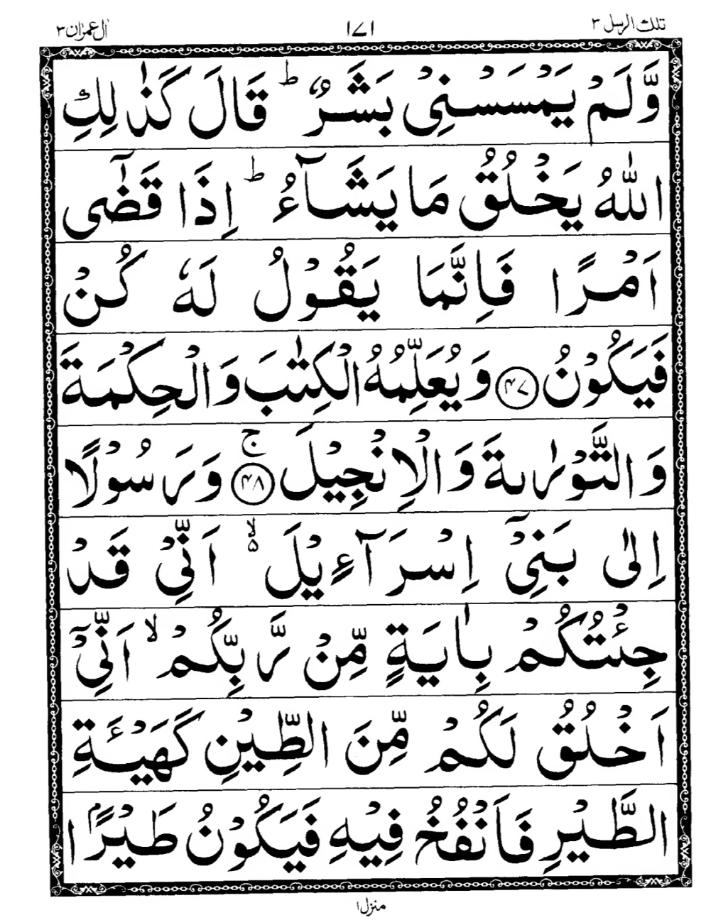 تلك الرسل ٣ ١٧١ اٰل عمران ٣
وَّلَمْ يَمْسَسْنِىْ بَشَرٌ ؕ قَالَ كَذٰلِكِ
اللّٰهُ يَخْلُقُ مَا يَشَآءُ ؕ اِذَا قَضٰٓى
اَمْرًا فَاِنَّمَا يَقُوْلُ لَهٗ كُنْ
فَيَكُوْنُ ﴿۴۷﴾ وَيُعَلِّمُهُ الْكِتٰبَ وَالْحِكْمَةَ
وَالتَّوْرٰىةَ وَالْاِنْجِيْلَ ﴿۴۸﴾ۚ وَرَسُوْلًا
اِلٰى بَنِىْٓ اِسْرَآءِيْلَ ۙ۬ اَنِّىْ قَدْ
جِئْتُكُمْ بِاٰيَةٍ مِّنْ رَّبِّكُمْ ۙ اَنِّىْٓ
اَخْلُقُ لَكُمْ مِّنَ الطِّيْنِ كَهَيْـَٔةِ
الطَّيْرِ فَاَنْفُخُ فِيْهِ فَيَكُوْنُ طَيْرًاۢ
منزل ١